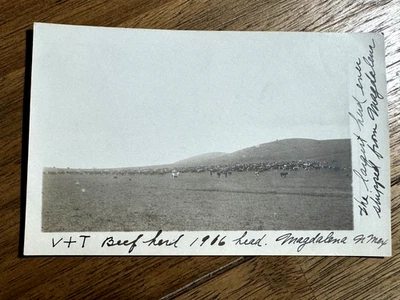 V + T Beef herd 1906 head. Magdalena N Mex
The largest herd ever
shipped from Magdalena